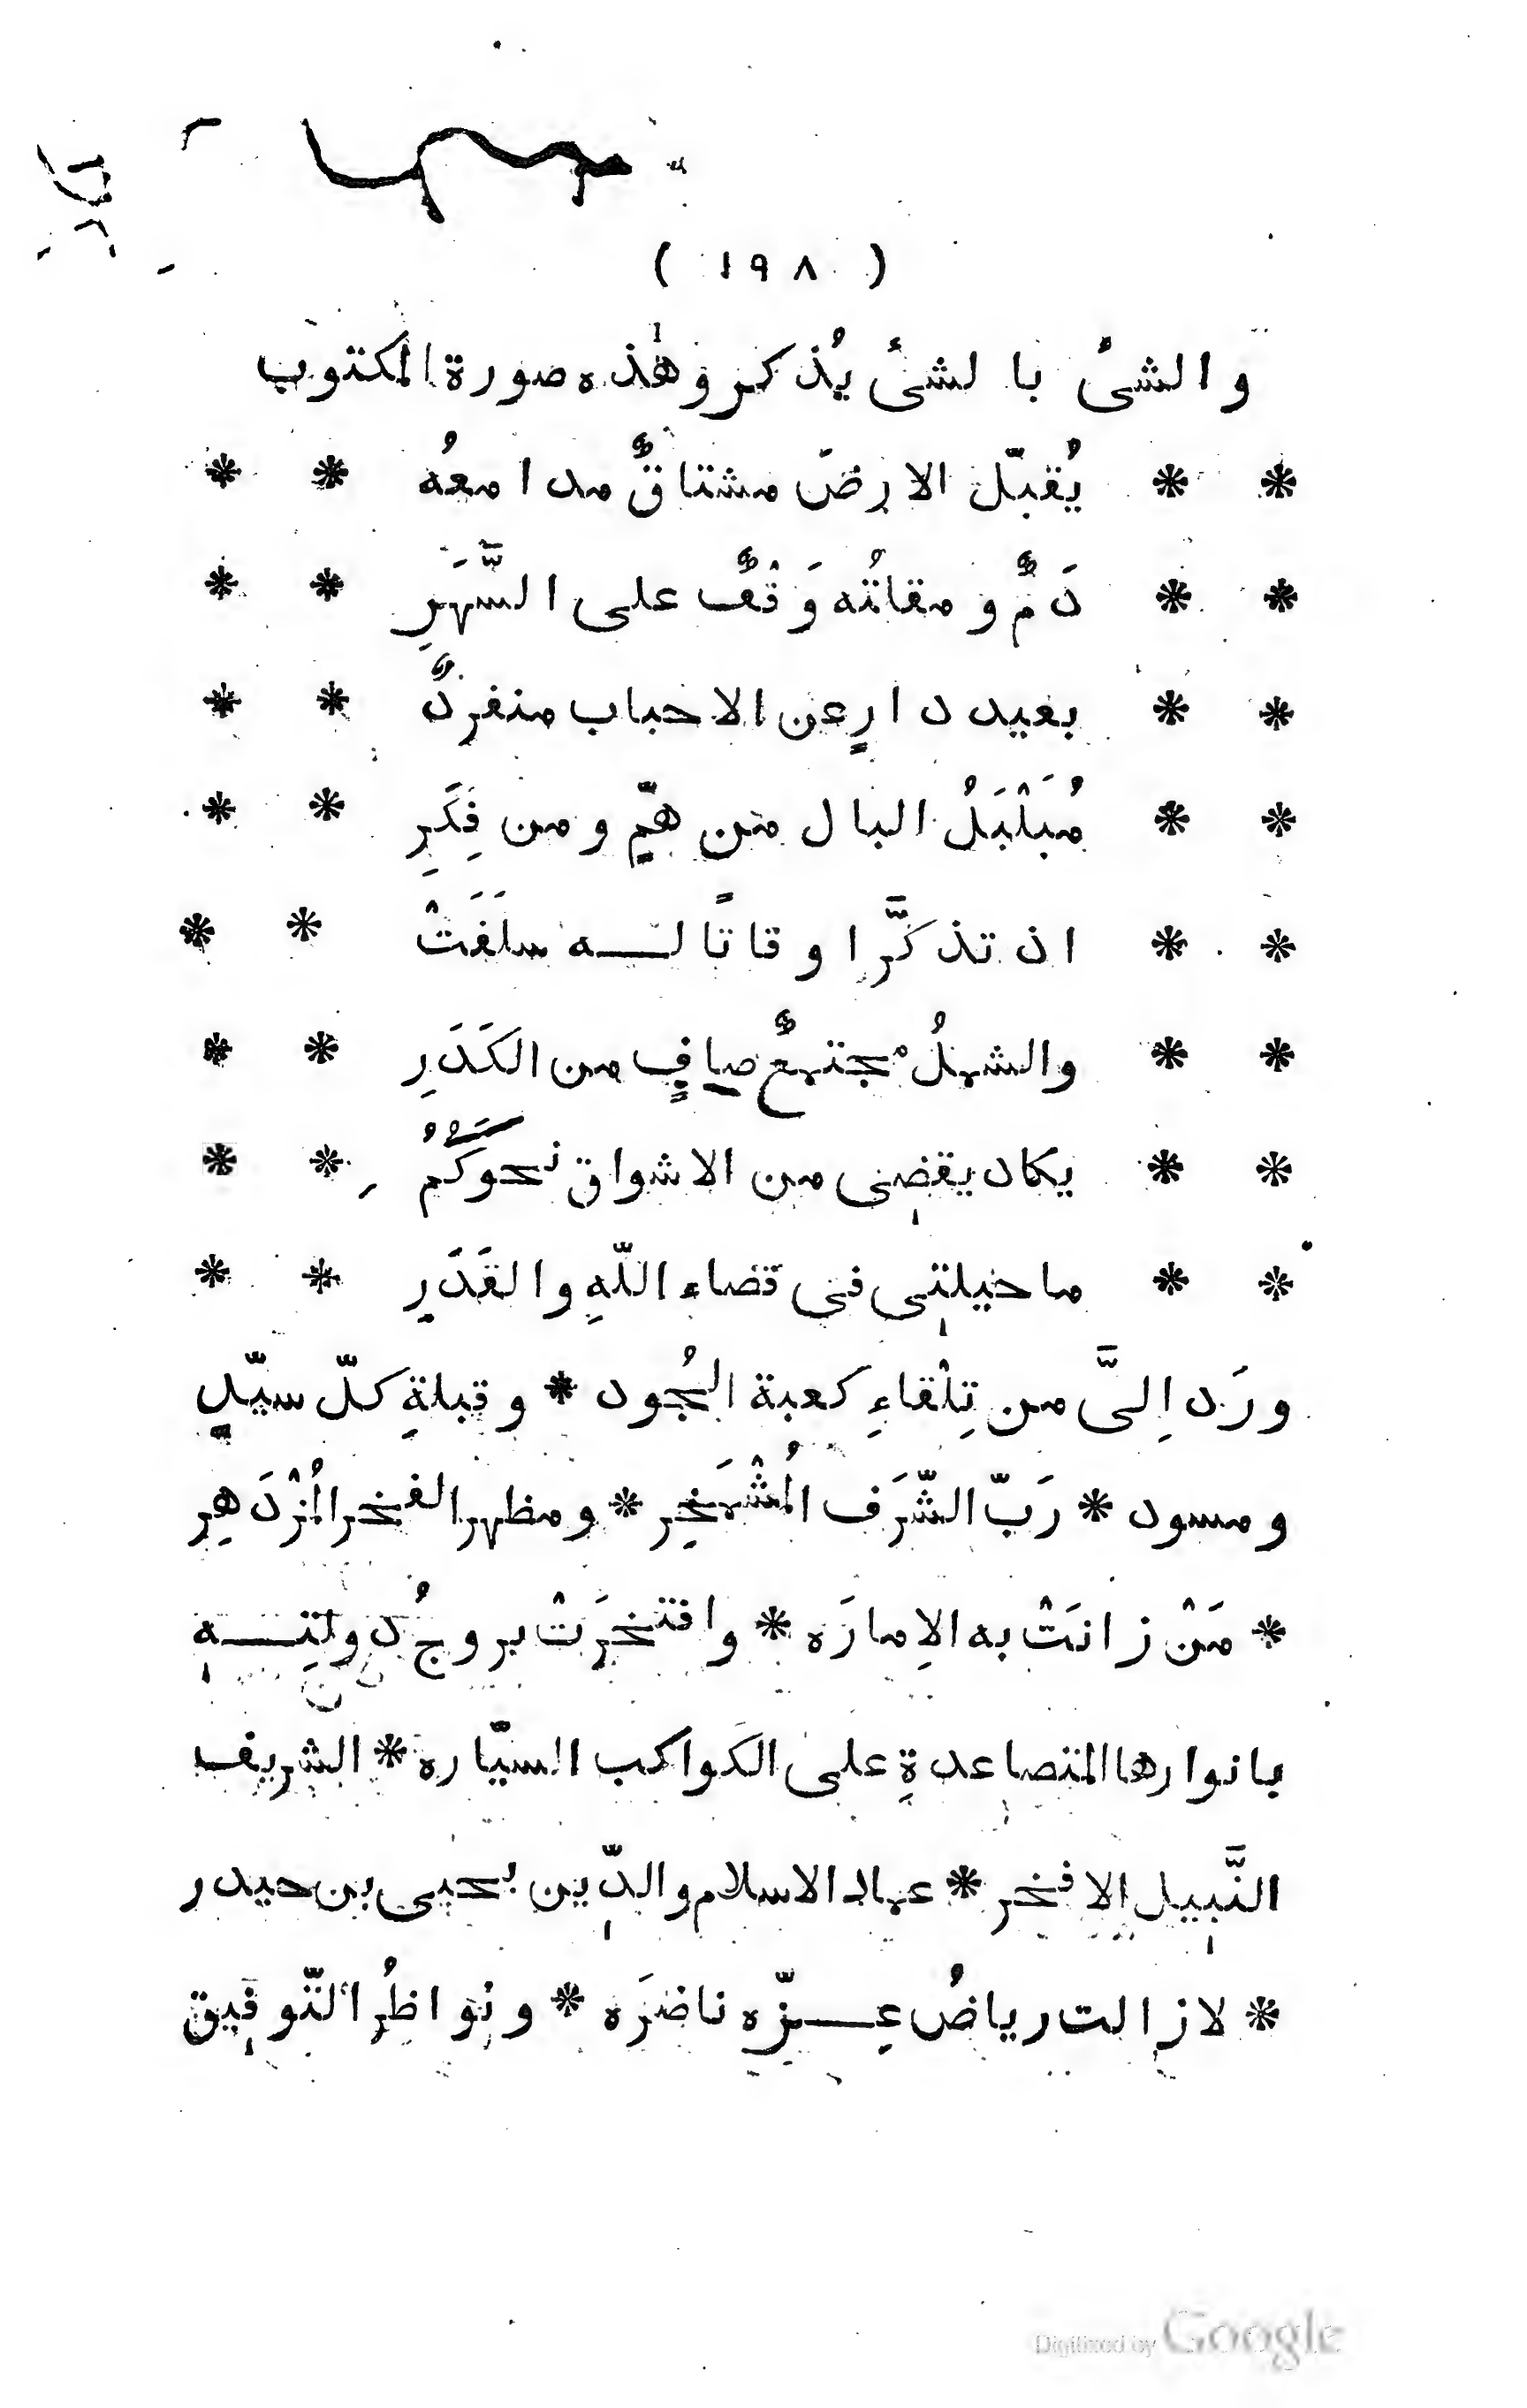 ( ١٩٨ )
والشئُ بالشئ يُذكر وهٰذه صورة المكتوب
* * يُقبّل الارضَ مشتاقٌ مدامعُه * *
* * دَمٌ ومقلتُه وَقْفٌ على السَّهَرِ * *
* * بعيد دارٍ عن الاحباب منفردٌ * *
* * مُبَلْبَلُ البال من همٍّ ومن فِكَرِ * *
* * ان تذكَّر اوقاتًا لــه سلَفَتْ * *
* * والشملُ مجتمعٌ صافٍ من الكَدَرِ * *
* * يكاد يقضى من الاشواق نحوَكُمُ * *
* * ما حيلتى فى قضاء اللّهِ والقَدَرِ * *
ورَد اِلىَّ من تِلْقاءِ كعبة الجُود * وقبلةِ كلّ سيّدٍ
ومسود * رَبّ الشّرَف المُشْمَخِر * ومظهر الفخر المُزْدَهِر
* مَنْ زانَتْ به الاِمارَه * وافتخرَتْ بروجُ دولتِــه
بانوارها المتصاعدةِ على الكواكب السيّاره * الشريف
النَّبيل الافخر * عماد الاسلام والدّين يحيى بن حيدر
* لازالت رياضُ عِــزّه ناضرَه * ونواظرُ التّوفيق
Digitized by Google